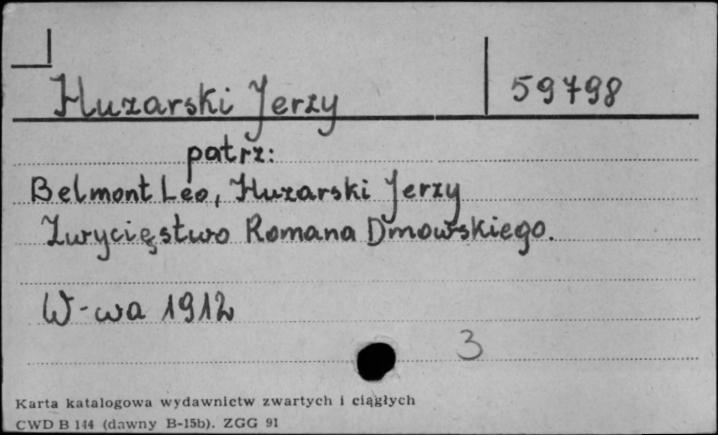 Huzarski Jerzy 59798
patrz:
Belmont Leo, Huzarski Jerzy
Zwycięstwo Romana Dmowskiego.
W-wa 1912
3
Karta katalogowa wydawnictw zwartych i ciągłych
CWD B 144 (dawny B-15b). ZGG 91